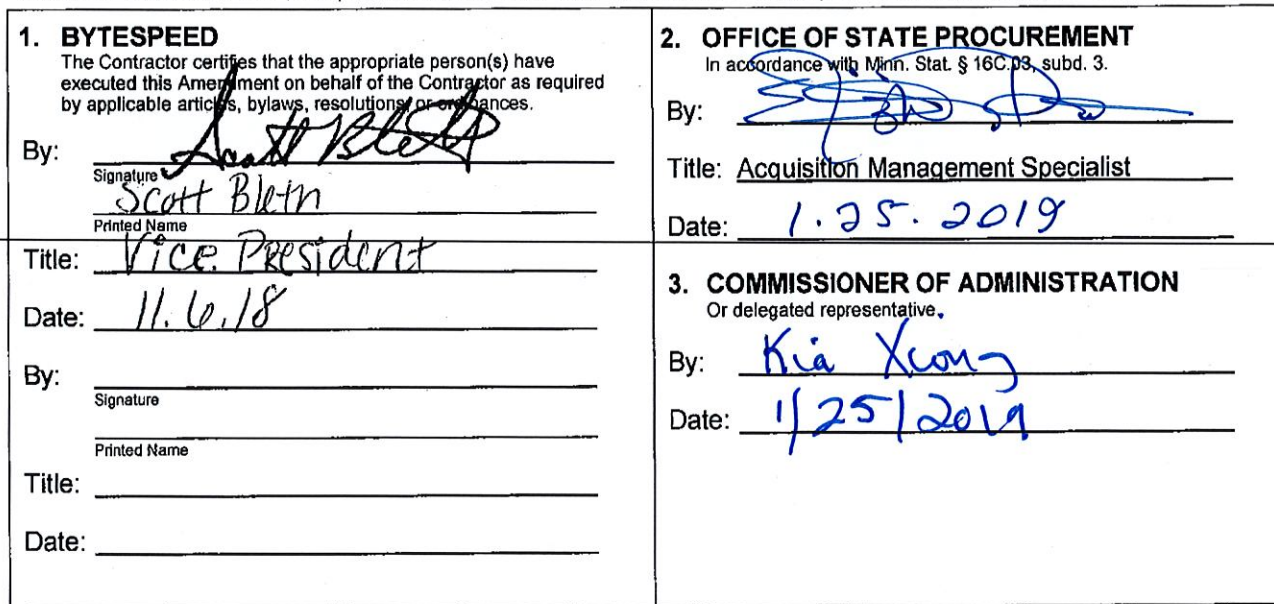 1. BYTESPEED
The Contractor certifies that the appropriate person(s) have
executed this Amendment on behalf of the Contractor as required
by applicable articles, bylaws, resolutions, or ordinances.
By: Scott Bleth
Signature
Scott Bleth
Printed Name
Title: Vice President
Date: 11.6.18
By:
Signature
Printed Name
Title:
Date:
2. OFFICE OF STATE PROCUREMENT
In accordance with Minn. Stat. § 16C.03, subd. 3.
By:
Title: Acquisition Management Specialist
Date: 1.25.2019
3. COMMISSIONER OF ADMINISTRATION
Or delegated representative.
By: Kia Xiong
Date: 1/25/2019